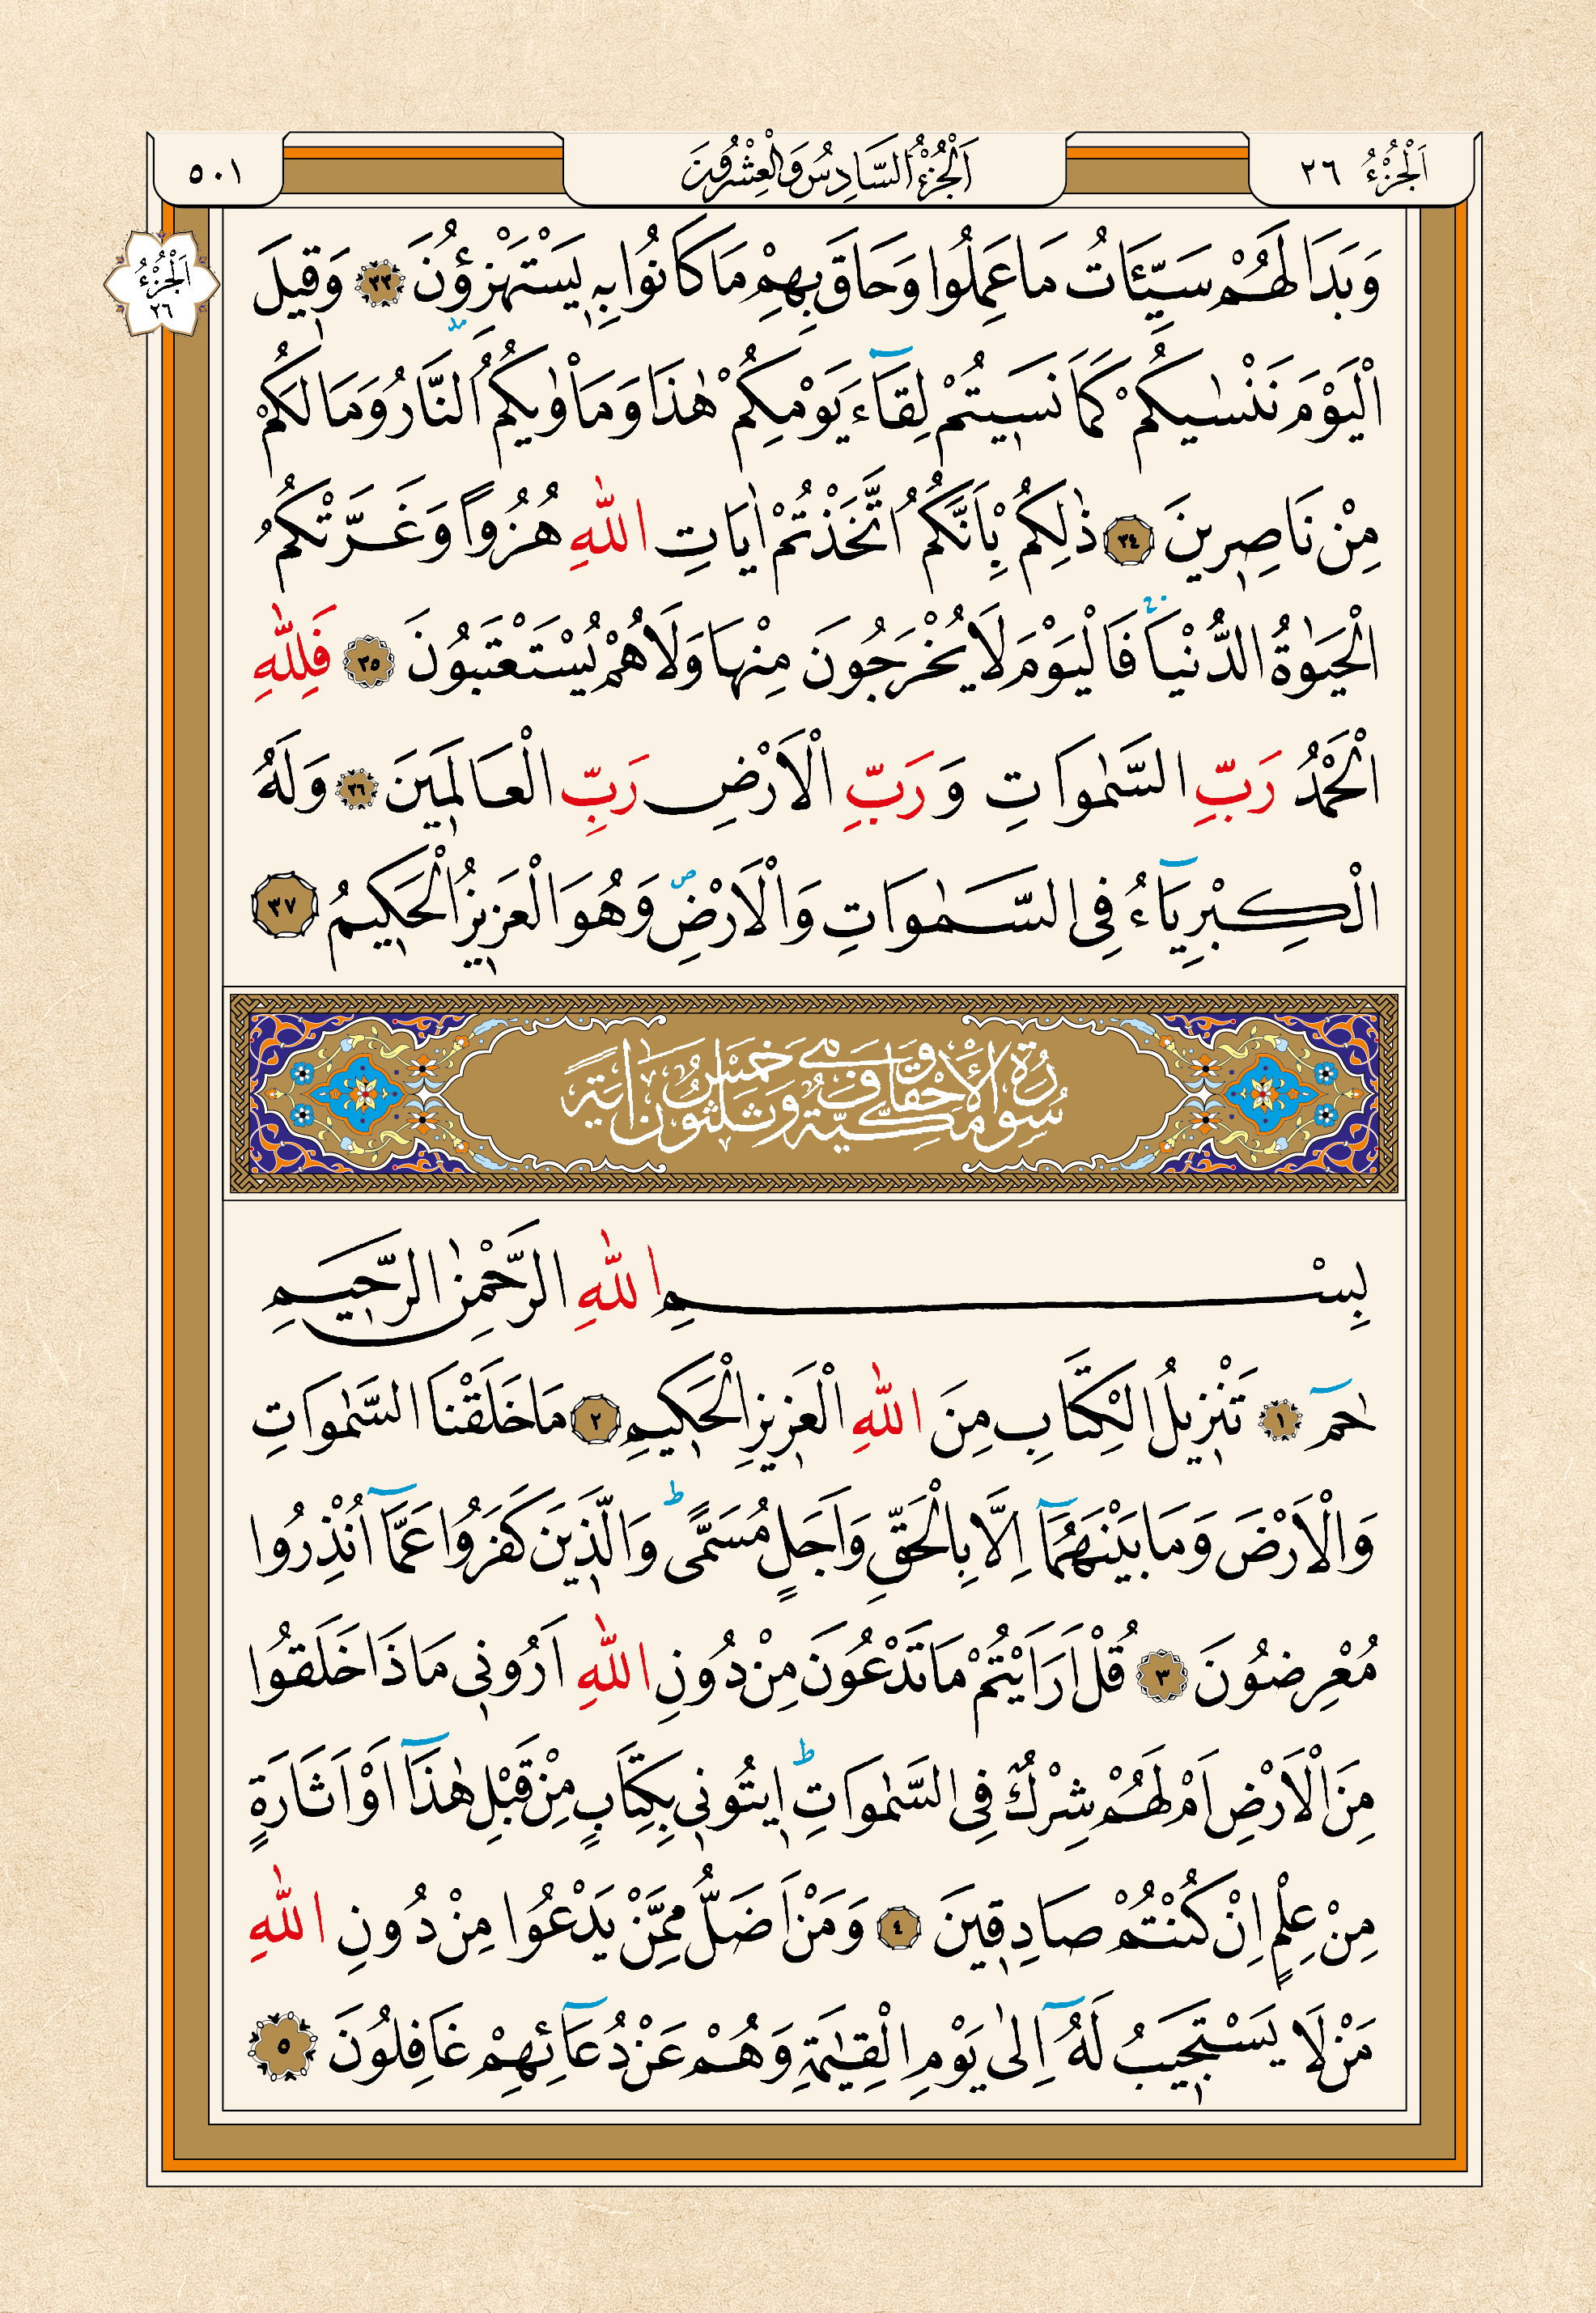 اَلْجُزْءُ ٢٦
اَلْجُزْءُ السَّادِسُ وَالْعِشْرُونَ
٥٠١
اَلْجُزْءُ
٢٦
وَبَدَا لَهُمْ سَيِّـَٔاتُ مَا عَمِلُوا وَحَاقَ بِهِمْ مَا كَانُوا بِهٖ يَسْتَهْزِؤُنَ ٣٣ وَقٖيلَ
الْيَوْمَ نَنْسٰيكُمْ كَمَا نَسٖيتُمْ لِقَٓاءَ يَوْمِكُمْ هٰذَا وَمَأْوٰيكُمُ النَّارُ وَمَا لَكُمْ
مِنْ نَاصِرٖينَ ٣٤ ذٰلِكُمْ بِاَنَّكُمُ اتَّخَذْتُمْ اٰيَاتِ اللّٰهِ هُزُوًا وَغَرَّتْكُمُ
الْحَيٰوةُ الدُّنْيَاۚ فَالْيَوْمَ لَا يُخْرَجُونَ مِنْهَا وَلَا هُمْ يُسْتَعْتَبُونَ ٣٥ فَلِلّٰهِ
الْحَمْدُ رَبِّ السَّمٰوَاتِ وَ رَبِّ الْاَرْضِ رَبِّ الْعَالَمٖينَ ٣٦ وَلَهُ
الْكِبْرِيَٓاءُ فِى السَّمٰوَاتِ وَالْاَرْضِۖ وَهُوَ الْعَزٖيزُ الْحَكٖيمُ ٣٧
سُورَةُ الْاَحْقَافِ مَكِّيَّةٌ وَهِيَ خَمْسٌ وَثَلٰثُونَ اٰيَةً
بِسْمِ اللّٰهِ الرَّحْمٰنِ الرَّحٖيمِ
حٰمٓ ١ تَنْزٖيلُ الْكِتَابِ مِنَ اللّٰهِ الْعَزٖيزِ الْحَكٖيمِ ٢ مَا خَلَقْنَا السَّمٰوَاتِ
وَالْاَرْضَ وَمَا بَيْنَهُمَٓا اِلَّا بِالْحَقِّ وَاَجَلٍ مُسَمًّىؕ وَالَّذٖينَ كَفَرُوا عَمَّٓا اُنْذِرُوا
مُعْرِضُونَ ٣ قُلْ اَرَاَيْتُمْ مَا تَدْعُونَ مِنْ دُونِ اللّٰهِ اَرُونٖى مَاذَا خَلَقُوا
مِنَ الْاَرْضِ اَمْ لَهُمْ شِرْكٌ فِى السَّمٰوَاتِؕ اٖيتُونٖى بِكِتَابٍ مِنْ قَبْلِ هٰذَٓا اَوْ اَثَارَةٍ
مِنْ عِلْمٍ اِنْ كُنْتُمْ صَادِقٖينَ ٤ وَمَنْ اَضَلُّ مِمَّنْ يَدْعُوا مِنْ دُونِ اللّٰهِ
مَنْ لَا يَسْتَجٖيبُ لَهُٓ اِلٰى يَوْمِ الْقِيٰمَةِ وَهُمْ عَنْ دُعَٓائِهِمْ غَافِلُونَ ٥